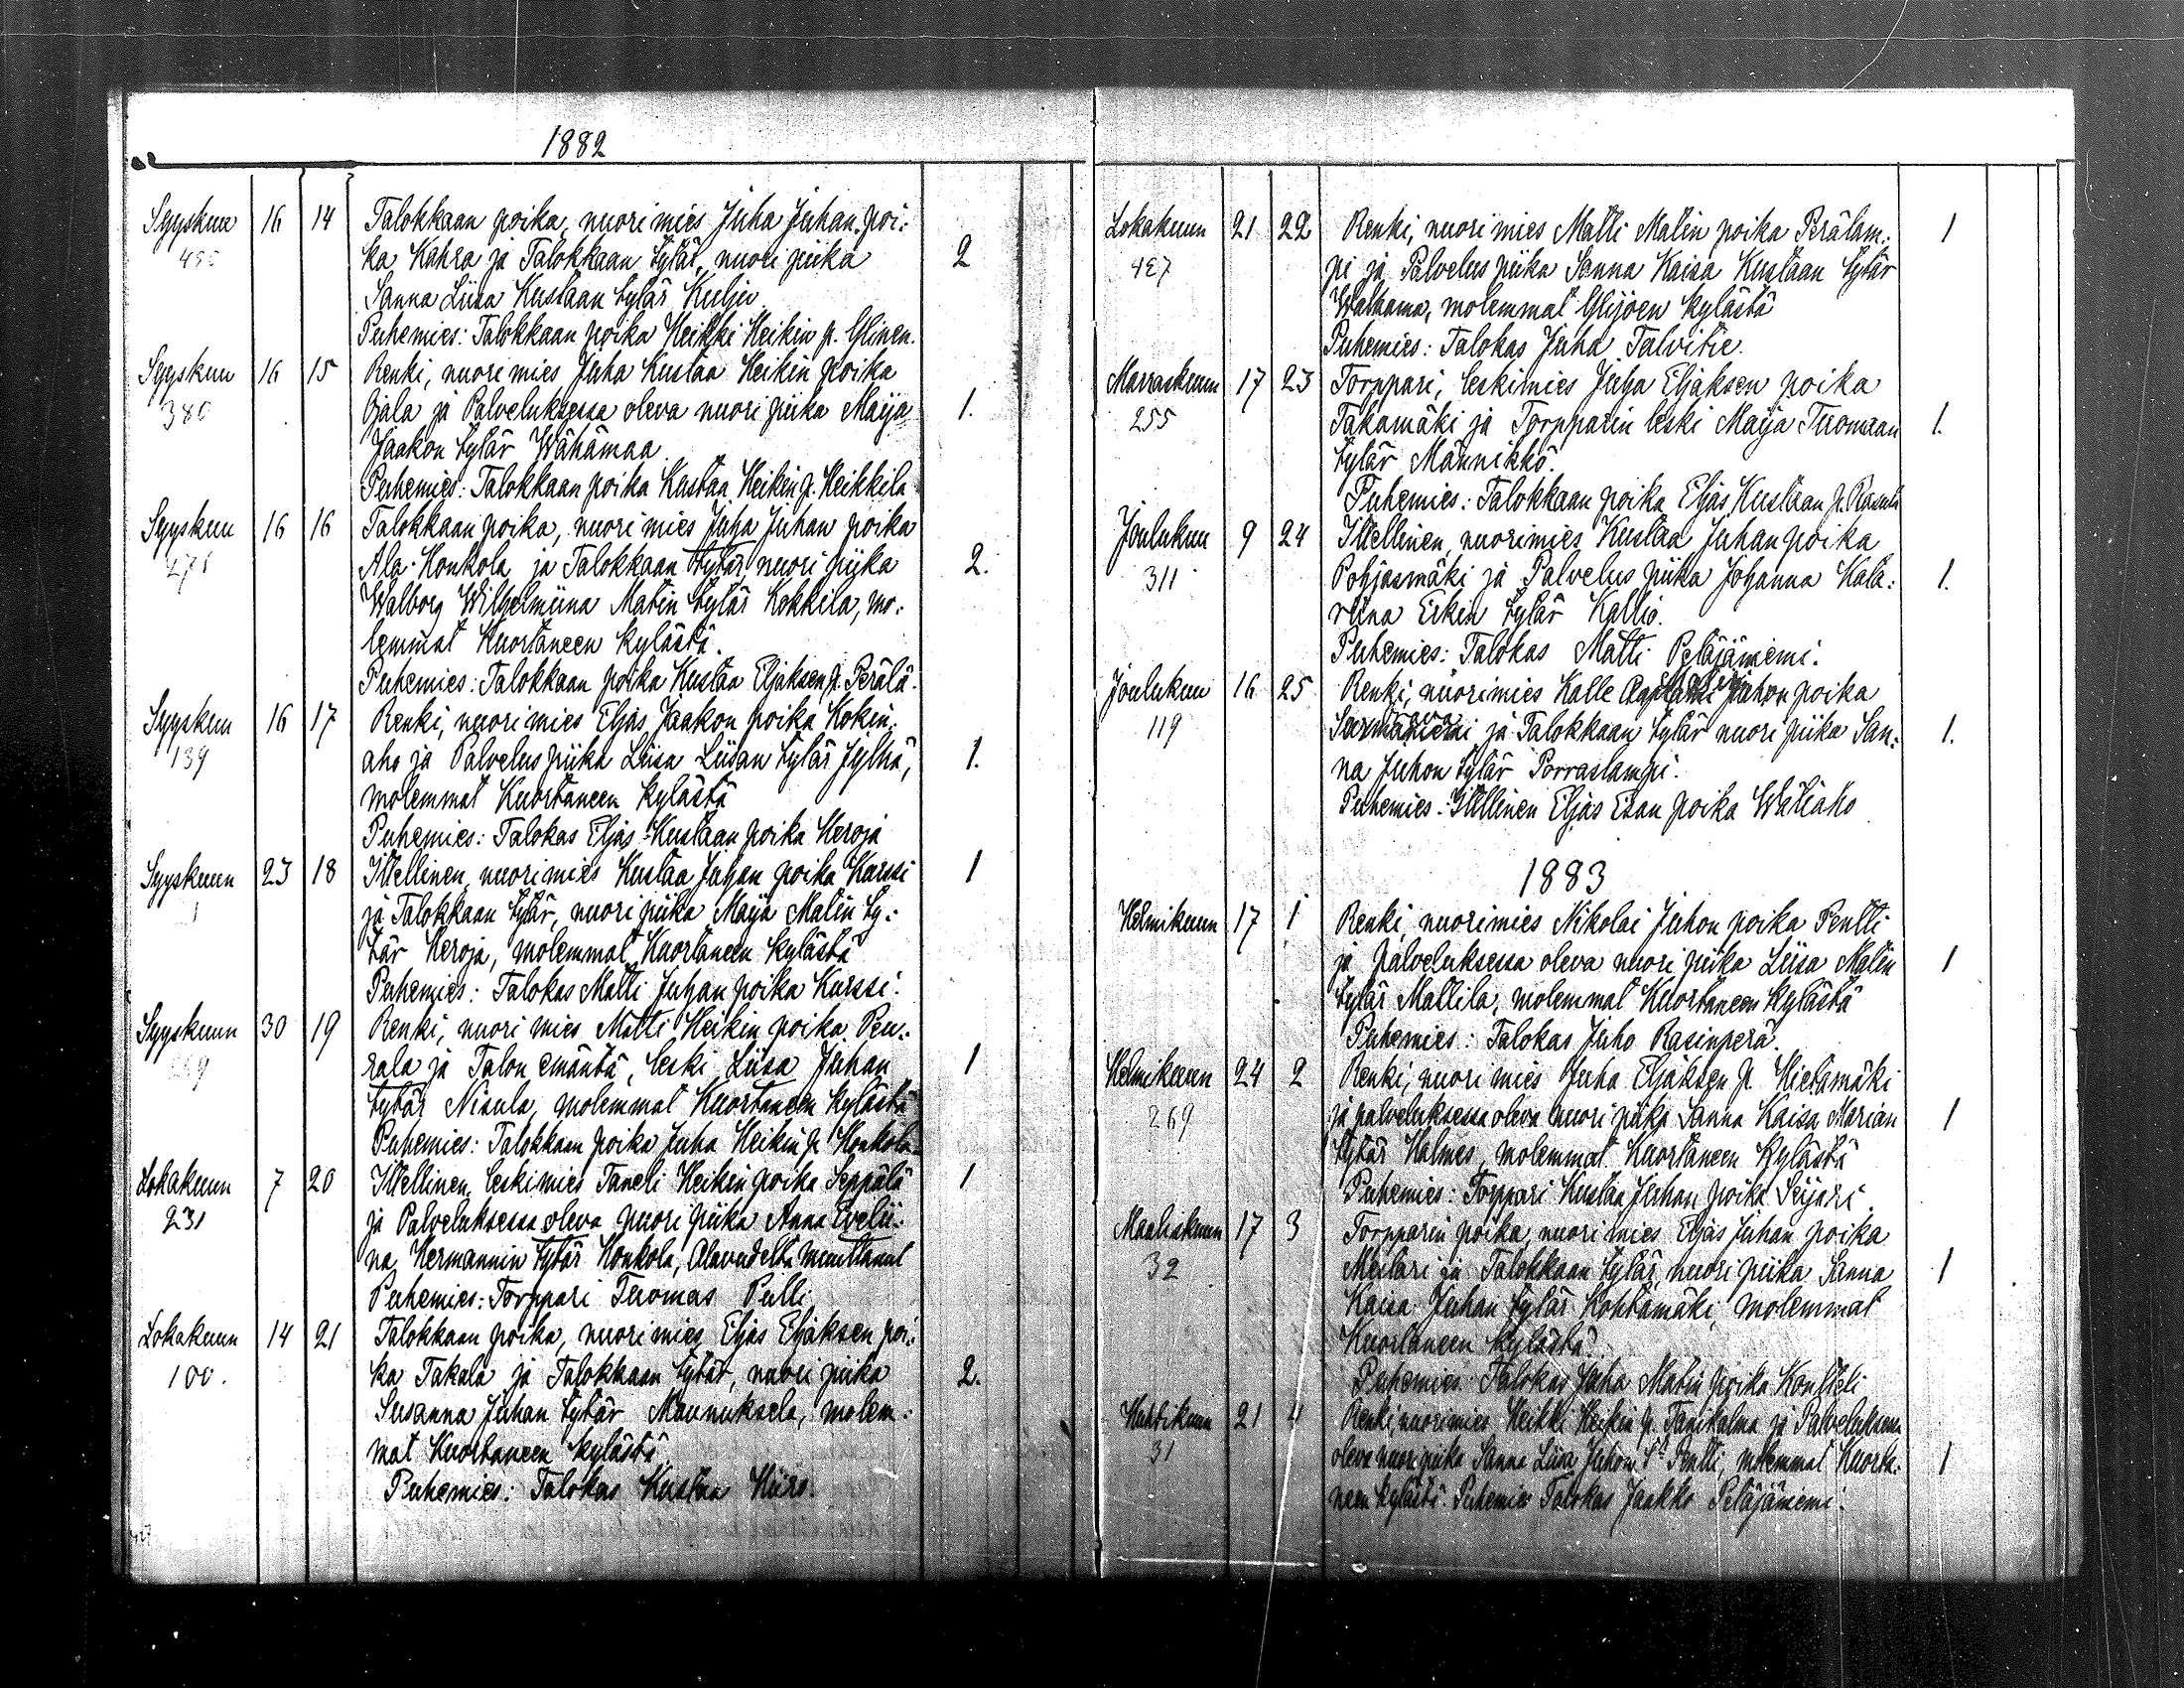 1882
Syyskuu 16 14 Talokkaan poika, nuori mies Juha Juhan poi:
ka Kahra ja Talokkaan tytär, nuori piika 2
Sanna Liisa Kustaan tytär Kulju
Puhemies: Talokkaan poika Heikki Heikin p. Ylinen.
Syyskuu 16 15 Renki, nuori mies Juha Kustaa Heikin poika
380 Ojala ja Palveluksessa oleva nuori piika Maija 1.
Jaakon tytär Wähämaa
Puhemies: Talokkaan poika Kustaa Heikin p. Heikkilä
Syyskuu 16 16 Talokkaan poika, nuori mies Juha Juhan poika
271 Ala-Honkola ja Talokkaan tytär, nuori piika 2.
Walborg Wilhelmiina Matin tytär Kokkila, mo:
lemmat Kuortaneen kylästä.
Puhemies: Talokkaan poika Kustaa Eljaksen p. Perälä.
Syyskuu 16 17 Renki, nuori mies Eljas Jaakon poika Kokin:
139 aho ja Palvelus piika Liisa Liisan tytär Jylhä, 1.
molemmat Kuortaneen kylästä
Puhemies: Talokas Eljas Kustaan poika Heroja
Syyskuun 23 18 Itellinen, nuori mies Kustaa Juhan poika Kurssi 1
1 ja Talokkaan tytär, nuori piika Maija Matin ty:
tär Heroja, molemmat Kuortaneen kylästä
Puhemies: Talokas Matti Juhan poika Kurssi.
Syyskuun 30 19 Renki, nuori mies Matti Heikin poika Peu:
rala ja Talon emäntä, leski Liisa Juhan 1
tytär Nisula, molemmat Kuortaneen kylästä
Puhemies: Talokkaan poika Juha Heikin p. Honkola
Lokakuun 7 20 Itellinen, leskimies Taneli Heikin poika Seppälä 1
231 ja Palveluksessa oleva nuori piika Anna Evelii:
na Hermannin tytär Honkola, Alavudelta muuttanut
Puhemies: Torppari Tuomas Pulli
Lokakuun 14 21 Talokkaan poika, nuori mies Eljas Eljaksen poi:
100. ka Takala ja Talokkaan tytär, nuori piika 2.
Susanna Juhan tytär Maunuksela, molem:
mat Kuortaneen kylästä.
Puhemies: Talokas Kustaa Hiiro.
Lokakuun 21 22 Renki, nuori mies Matti Matin poika Perälam: 1
427 pi ja Palvelus piika Sanna Kaisa Kustaan tytär
molemmat Ylijoen kylästä
Puhemies: Talokas Juha Talvitie.
Marraskuun 17 23 Torppari, leskimies Juha Eljaksen poika
255 Takamäki ja Torpparin leski Maija Tuomaan 1.
tytär Männikkö.
Puhemies: Talokkaan poika Eljas Kustaan p.
Joulukuu 9 24 Itellinen, nuorimies Kustaa Juhan poika
311 Pohjasmäki ja Palvelus piika Johanna Kata: 1.
riina Erkin tytär Kallio.
Puhemies: Talokas Matti Peläjäniemi.
Joulukuu 16 25 Renki, nuorimies Kalle Juhon poika
119 ja Talokkaan tytär nuori piika San: 1.
na Juhon tytär Porraslampi.
Puhemies: Itellinen Eljas Esan poika Wäliaho
1883
Helmikuun 17 1 Renki, nuorimies Nikolai Juhon poika Pentti
ja palveluksessa oleva nuori piika Liisa Matin 1
tytär Mattila, molemmat Kuortaneen kylästä
Puhemies: Talokas Juho Rasinperä.
Helmikuun 24 2 Renki, nuori mies Juha Eljaksen p. Hietamäki
269 ja palveluksessa oleva nuori piika Sanna Kaisa Marian 1
tytär Holmes, molemmat Kuortaneen kylästä
Puhemies: Torppari Kustaa Juhan poika Seijari
Maaliskuun 17 3 Torpparin poika, nuori mies Eljas Juhan poika
32 Muilari ja Talokkaan tytär, nuori piika Sanna 1
Kaisa Juhan tytär Kohtamäki, molemmat
Kuortaneen kylästä.
Puhemies: Talokas Juha Matin poika
Huhtikuun 21 4 Renki, nuorimies Heikki Heikin p. ja Palveluksessa
31 oleva nuori piika Sanna Liisa Juhon t. Pentti, molemmat Kuorta: 1
neen kylästä. Puhemies Talokas Jaakko Peläjäniemi.